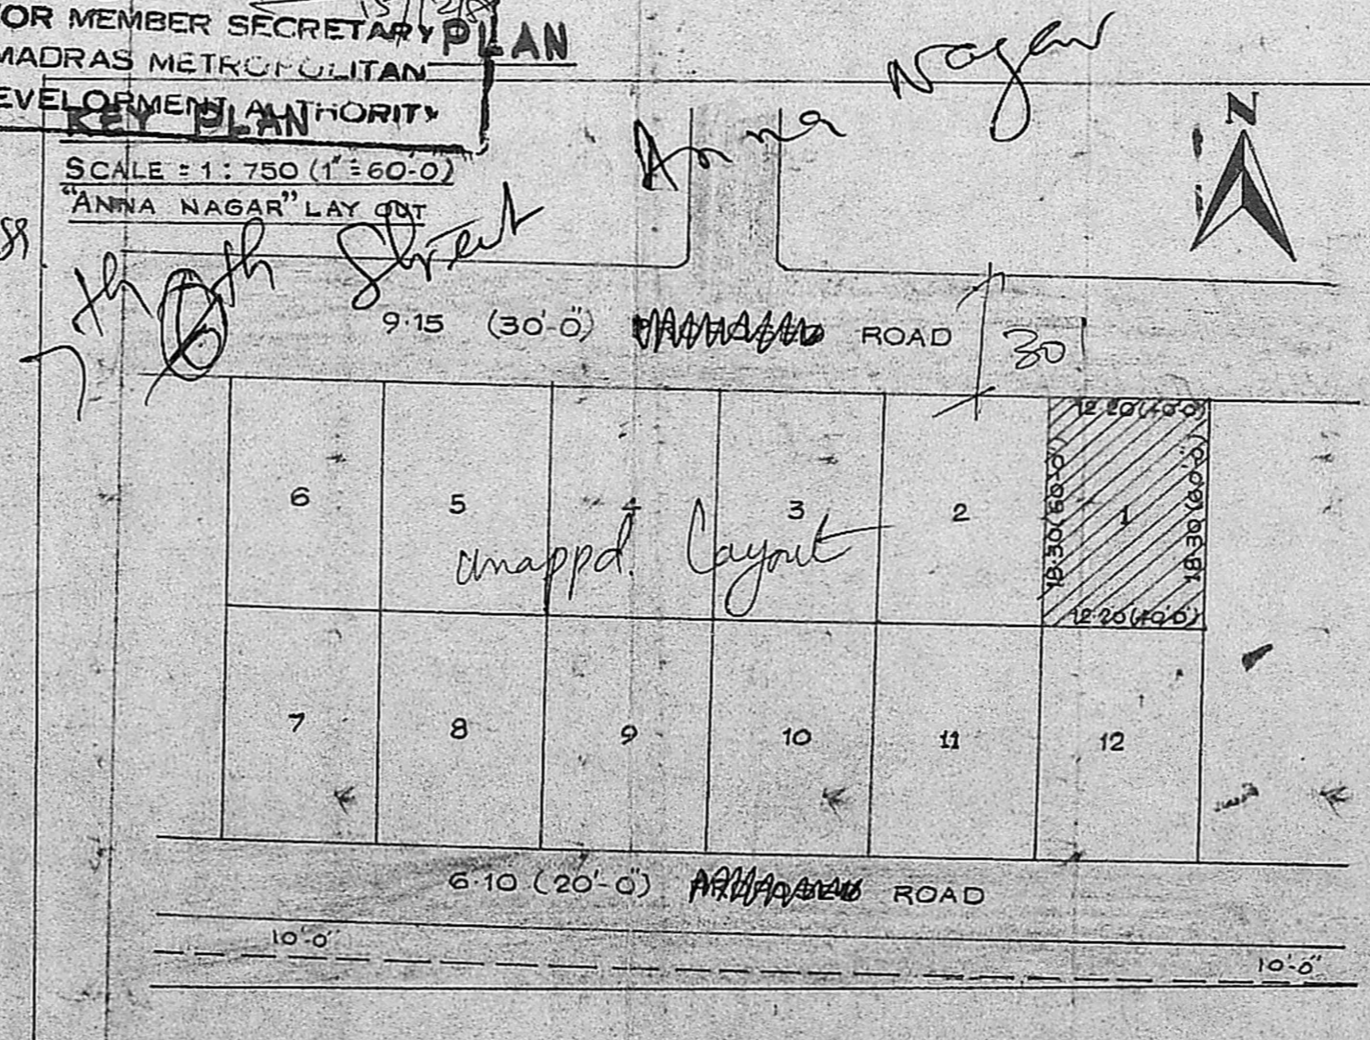 OR MEMBER SECRETARY
PLAN
MADRAS METROPOLITAN
EVELOPMENT AUTHORITY
KEY PLAN
SCALE = 1 : 750 (1" = 60'-0)
"ANNA NAGAR" LAY OUT
Anna Nagar
N
7th 6th Street
9·15 (30'-0") ROAD
30'
12.20(40'-0)
18.30(60'-0)
18.30(60'-0)
12.20(40'-0)
6 5 4 3 2 1
unappd. Layout
7 8 9 10 11 12
6·10 (20'-0") ROAD
10'-0"
10'-0"